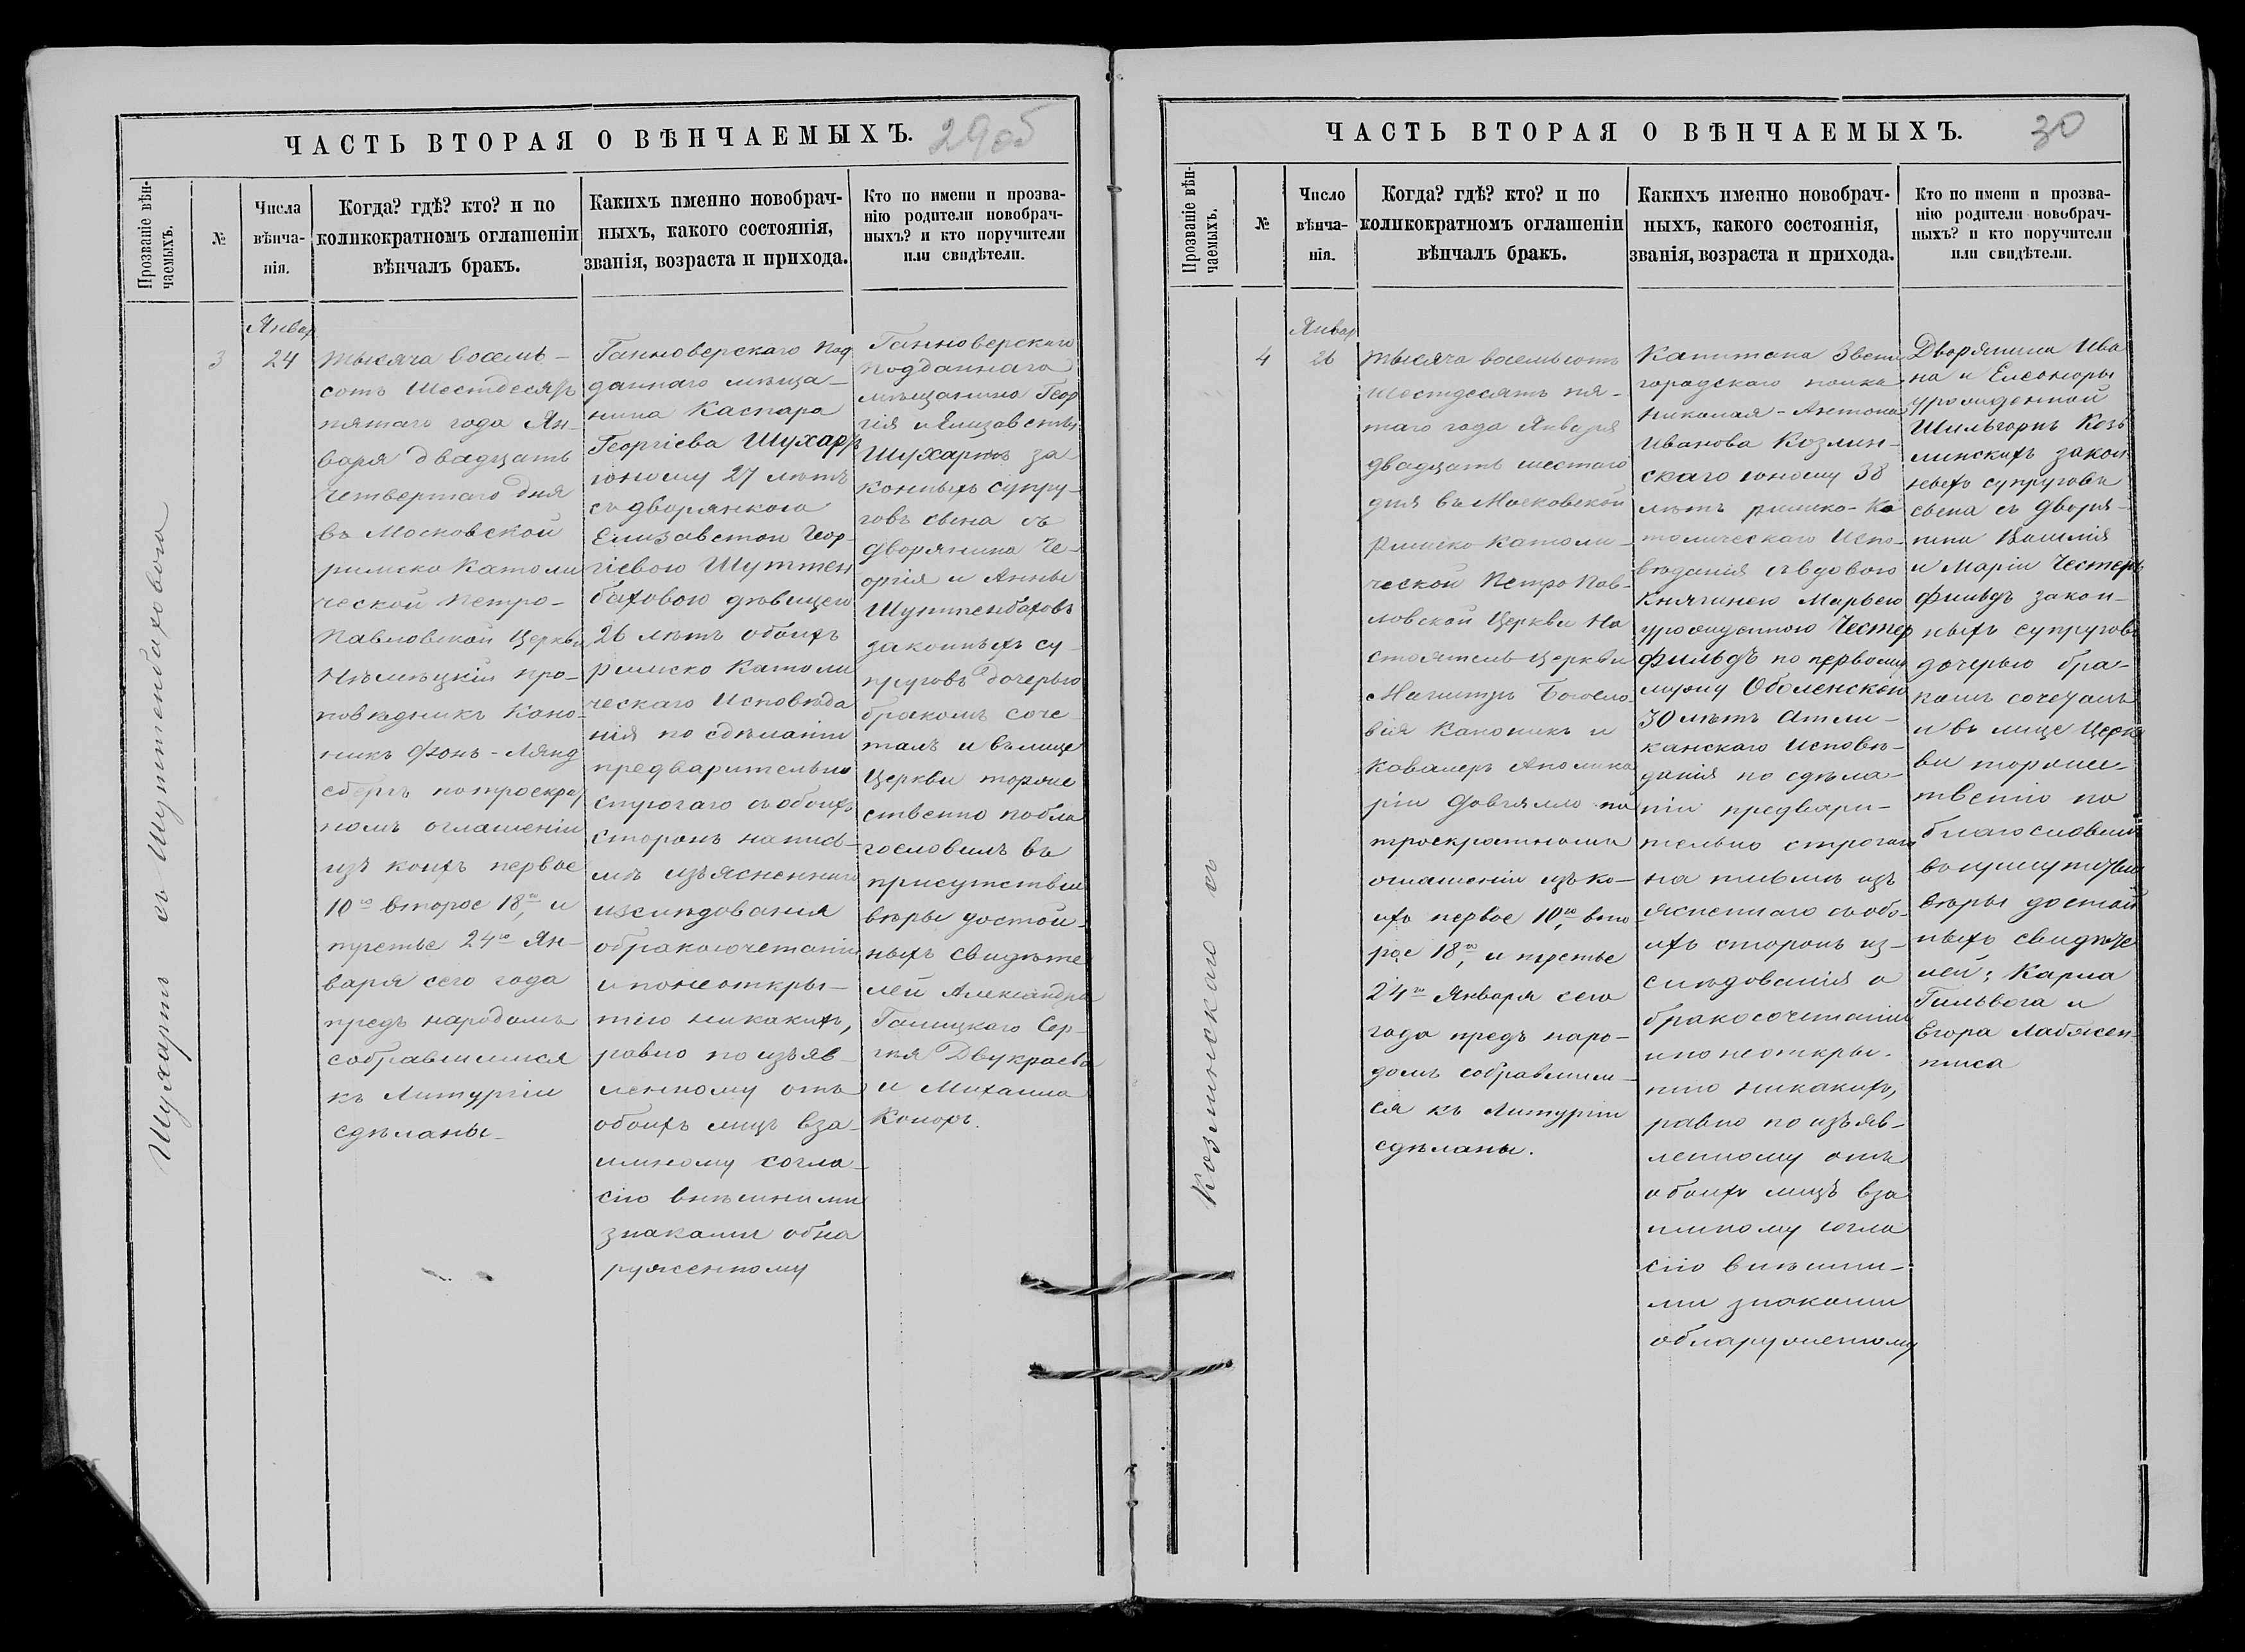 ЧАСТЬ ВТОРАЯ О ВѢНЧАЕМЫХЪ.
29об
Прозваніе вѣн-
чаемыхъ.
№
Числа
вѣнча-
нія.
Когда? гдѣ? кто? и по
коликократномъ оглашеніи
вѣнчалъ бракъ.
Какихъ именно новобрач-
ныхъ, какого состоянія,
званія, возраста и прихода.
Кто по имени и прозва-
нію родители новобрач-
ныхъ? и кто поручители
или свидѣтели.
Шухартъ съ Шуттенбаховою
3
Январ
24
тысяча восемь-
сотъ Шестдесятъ
пятаго года Ян-
варя двадцать
четвертаго дня
въ Московской
римско Католи
ческой Петро-
Павловской Церкви
Нѣмѣцкій про-
повѣдникъ Кано-
никъ Фонъ-Лянд
сбергъ по троекрат
номъ оглашеніи
изъ коихъ первое
10го второе 18го, и
третье 24го Ян-
варя сего года
предъ народомъ
собравшимся
къ Литургіи
сдѣланы
Ганноверскаго Под
даннаго мѣща-
нина Каспара
Георгіева Шухартъ
юношу 27 лѣтъ
съ дворянкою
Елизаветою Геор-
гіевою Шуттен
баховою дѣвицею
26 лѣтъ обоихъ
римско Католи
ческаго Исповѣда
нія по сдѣланіи
предварительно
строгаго съ обоихъ
сторонъ на пись-
мѣ изъясненнаго
изслѣдованія
о бракосочетаніи
и по не откры-
тію никакихъ,
равно по изъяв-
ленному отъ
обоихъ лицъ вза-
имному согла-
сію внѣшними
знаками обна
руженному
Ганноверскаго
подданнаго
мѣщанина Геор
гія и Елизаветы
Шухартъ за
конныхъ супру-
говъ сына съ
дворянина Ге-
оргія и Анны
Шуттенбаховъ
законныхъ су-
пруговъ дочерью
бракомъ соче-
талъ и въ лице
Церкви торже
ственно побла
гословилъ въ
присутствіи
вѣры достой-
ныхъ свидѣте
лей Александра
Галицкого Сер-
гѣя Двукраева
и Михаила
Коноръ.
ЧАСТЬ ВТОРАЯ О ВѢНЧАЕМЫХЪ.
30
Прозваніе вѣн-
чаемыхъ.
№
Число
вѣнча-
нія.
Когда? гдѣ? кто? и по
коликократномъ оглашеніи
вѣнчалъ бракъ.
Какихъ именно новобрач-
ныхъ, какого состоянія,
званія, возраста и прихода.
Кто по имени и прозва-
нію родители новобрач-
ныхъ? и кто поручители
или свидѣтели.
Козлинскаго съ
4
Январ
26
тысяча восемьсотъ
шестдесятъ пя-
таго года Января
двадцать шестаго
дня въ Московской
римско-католи-
ческой Петро Пав-
ловской Церкви На
стоятель Церкви
Магистръ Богосло
вія Каноникъ и
Кавалеръ Аполина
рій Довгялло по
троекратномъ
оглашеніи изъ ко-
ихъ первое 10го, вто
рое 18го, и третье
24го Января сего
года предъ наро-
домъ собравшим-
ся къ Литургіи
сдѣланы.
Капитана Звени
городскаго полка
Николая-Антона
Иванова Козлин-
скаго юношу 38
лѣтъ римско-Ка
толическаго Испо-
вѣданія съ вдовою
Княгинею Марьею
урожденною Честер
фильдъ по первому
мужу Оболенской
30 лѣтъ Англи-
канскаго Исповѣ-
данія по сдѣла-
ніи предвари-
тельно строгаго
на письмѣ изъ
ясненнаго съ обо-
ихъ сторонъ из-
слѣдованія о
бракосочетаніи
и по не откры-
тію никакихъ,
равно по изъяв-
ленному отъ
обоихъ лицъ вза
имному согла
сію внѣшни-
ми знаками
обнаруженному
Дворянина Ива
на и Елеоноры
урожденной
Шильгорнъ Козъ
линскихъ закон
ныхъ супруговъ
сына съ дворя-
нина Василія
и Маріи Честеръ
фильдъ закон-
ныхъ супруговъ
дочерью бра-
комъ сочеталъ
и въ лице Церк
ви торже-
ственно по
благословилъ
въ присутствіи
вѣры достой
ныхъ свидѣте
лей: Карла
Гильвога и
Егора Лабжен-
писа